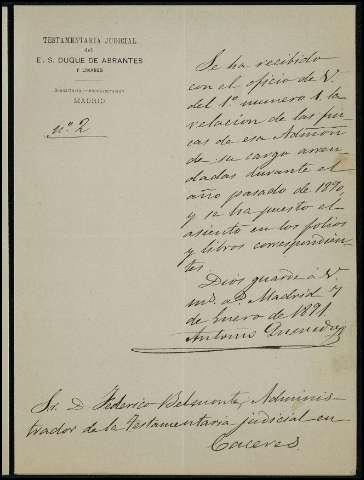 TESTAMENTARÍA JUDICIAL
del
E. S. DUQUE DE ABRANTES
Y LINARES
MADRID
nº 2
Se ha recibido
con el oficio de V.
del 1º numero 1, la
relacion de las fin-
cas de esa Admon
de su cargo arren-
dadas durante el
año pasado de 1890,
y se ha puesto el
asiento en los folios
y libros correspondien-
tes
Dios guarde á V.
ms. as. Madrid 7
de Enero de 1891
Antonio
Sr. D. Federico Belmonte, Adminis-
trador de la Testamentaria judicial en
Caceres.